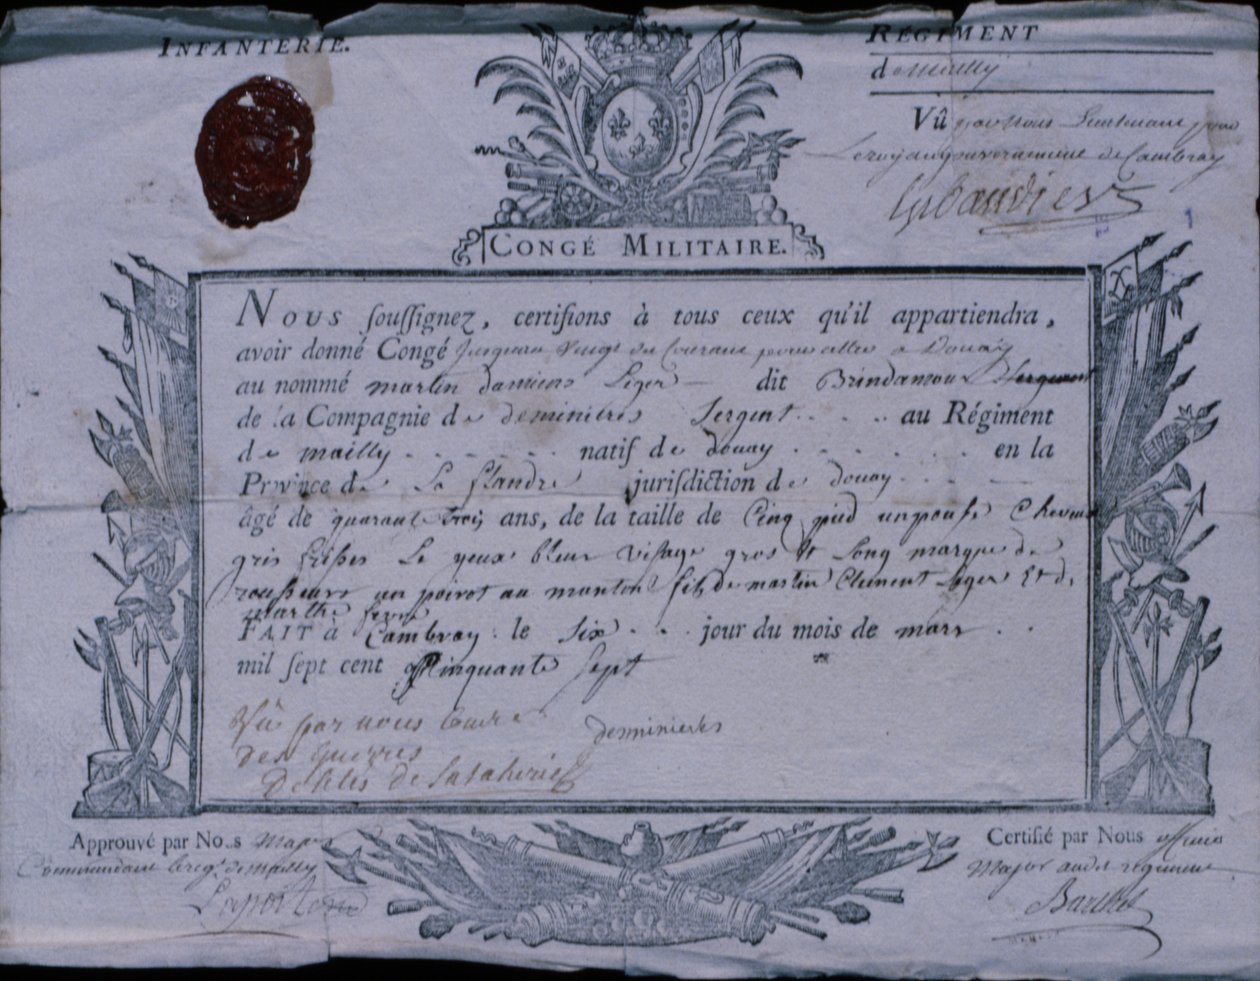 INFANTERIE.
RÉGIMENT
de Mailly
Vû par nous Lieutenant pour
Le roy au gouvernement de Cambray
CONGÉ MILITAIRE.
Nous souſſignez, certifions à tous ceux qu'il appartiendra,
avoir donné Congé Jusquau vingt du Courant pour aller a Douay
au nommé martin damiens Léger dit Brindamour Sergent
de la Compagnie de deminieres Sergent au Régiment
de mailly natif de douay en la
Province de La flandre juriſdiction de douay
âgé de quarant trois ans, de la taille de Cinq pied un pouse Cheveux
gris les yeux bleux visage gros et long marque de
rousseurs un poirot au manton fils de martin Clement Léger Et de
marthe
FAIT à Cambray le Six jour du mois de mars
mil ſept cent Cinquante Sept
Vû par nous
des guerres
deminieres
Approuvé par Nous Major
Commandant le regt. de mailly
Certifié par Nous
Major audit regiment